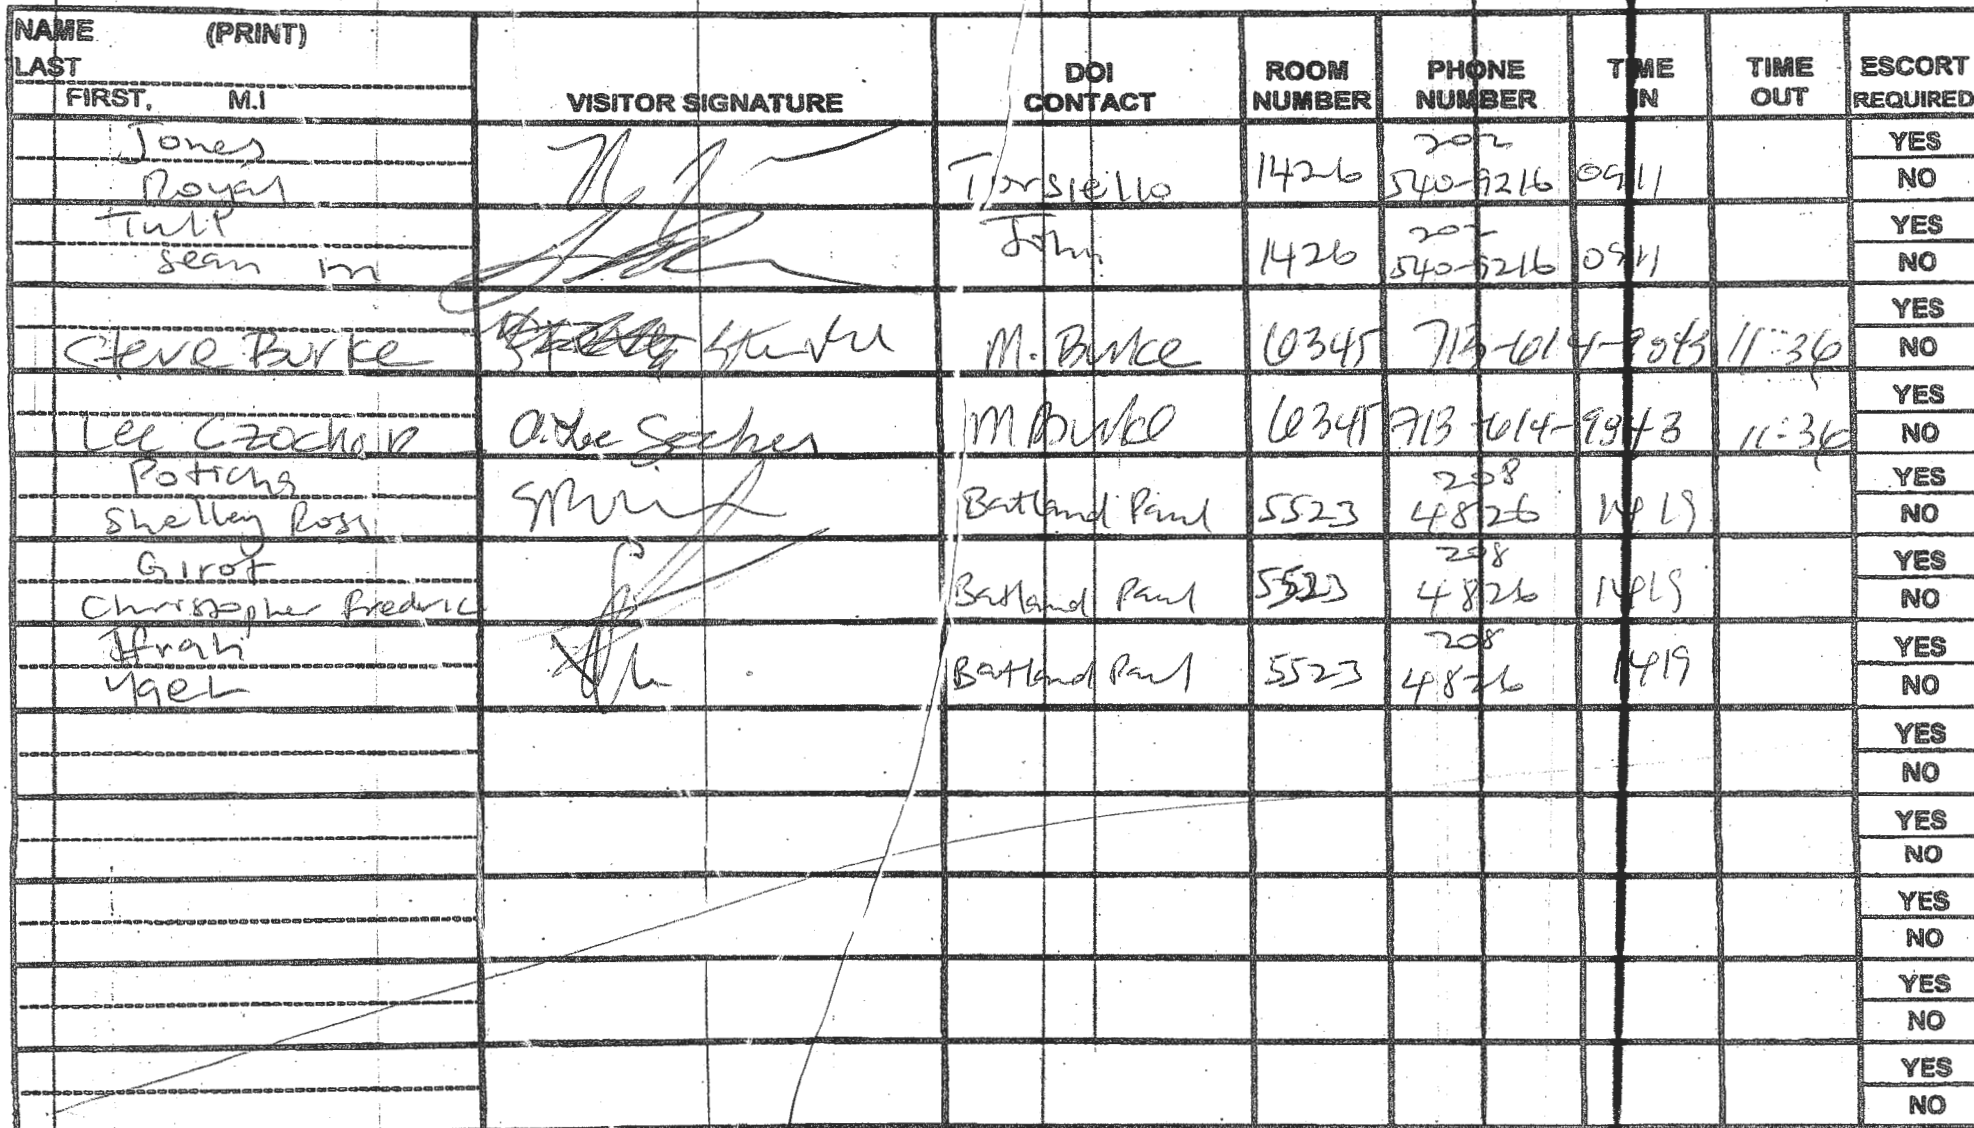 NAME (PRINT)
LAST
FIRST, M.I
VISITOR SIGNATURE
DOI
CONTACT
ROOM
NUMBER
PHONE
NUMBER
TIME
IN
TIME
OUT
ESCORT
REQUIRED
Jones
Royal
Torsiello
1426
202
540-9216
0911
YES
NO
Tulip
Sean M
John
1426
202
540-9216
0911
YES
NO
Steve Burke
M. Burke
6345
713-614-9843
11:36
YES
NO
Lee
M Burke
6345
713-614-9843
11:36
YES
NO
Poticha
Shelley Ross
Batland Paul
5523
208
4826
1419
YES
NO
Girot
Christopher Frederic
Batland Paul
5523
208
4826
1419
YES
NO
Ifrah
Yael
Batland Paul
5523
208
4826
1419
YES
NO
YES
NO
YES
NO
YES
NO
YES
NO
YES
NO